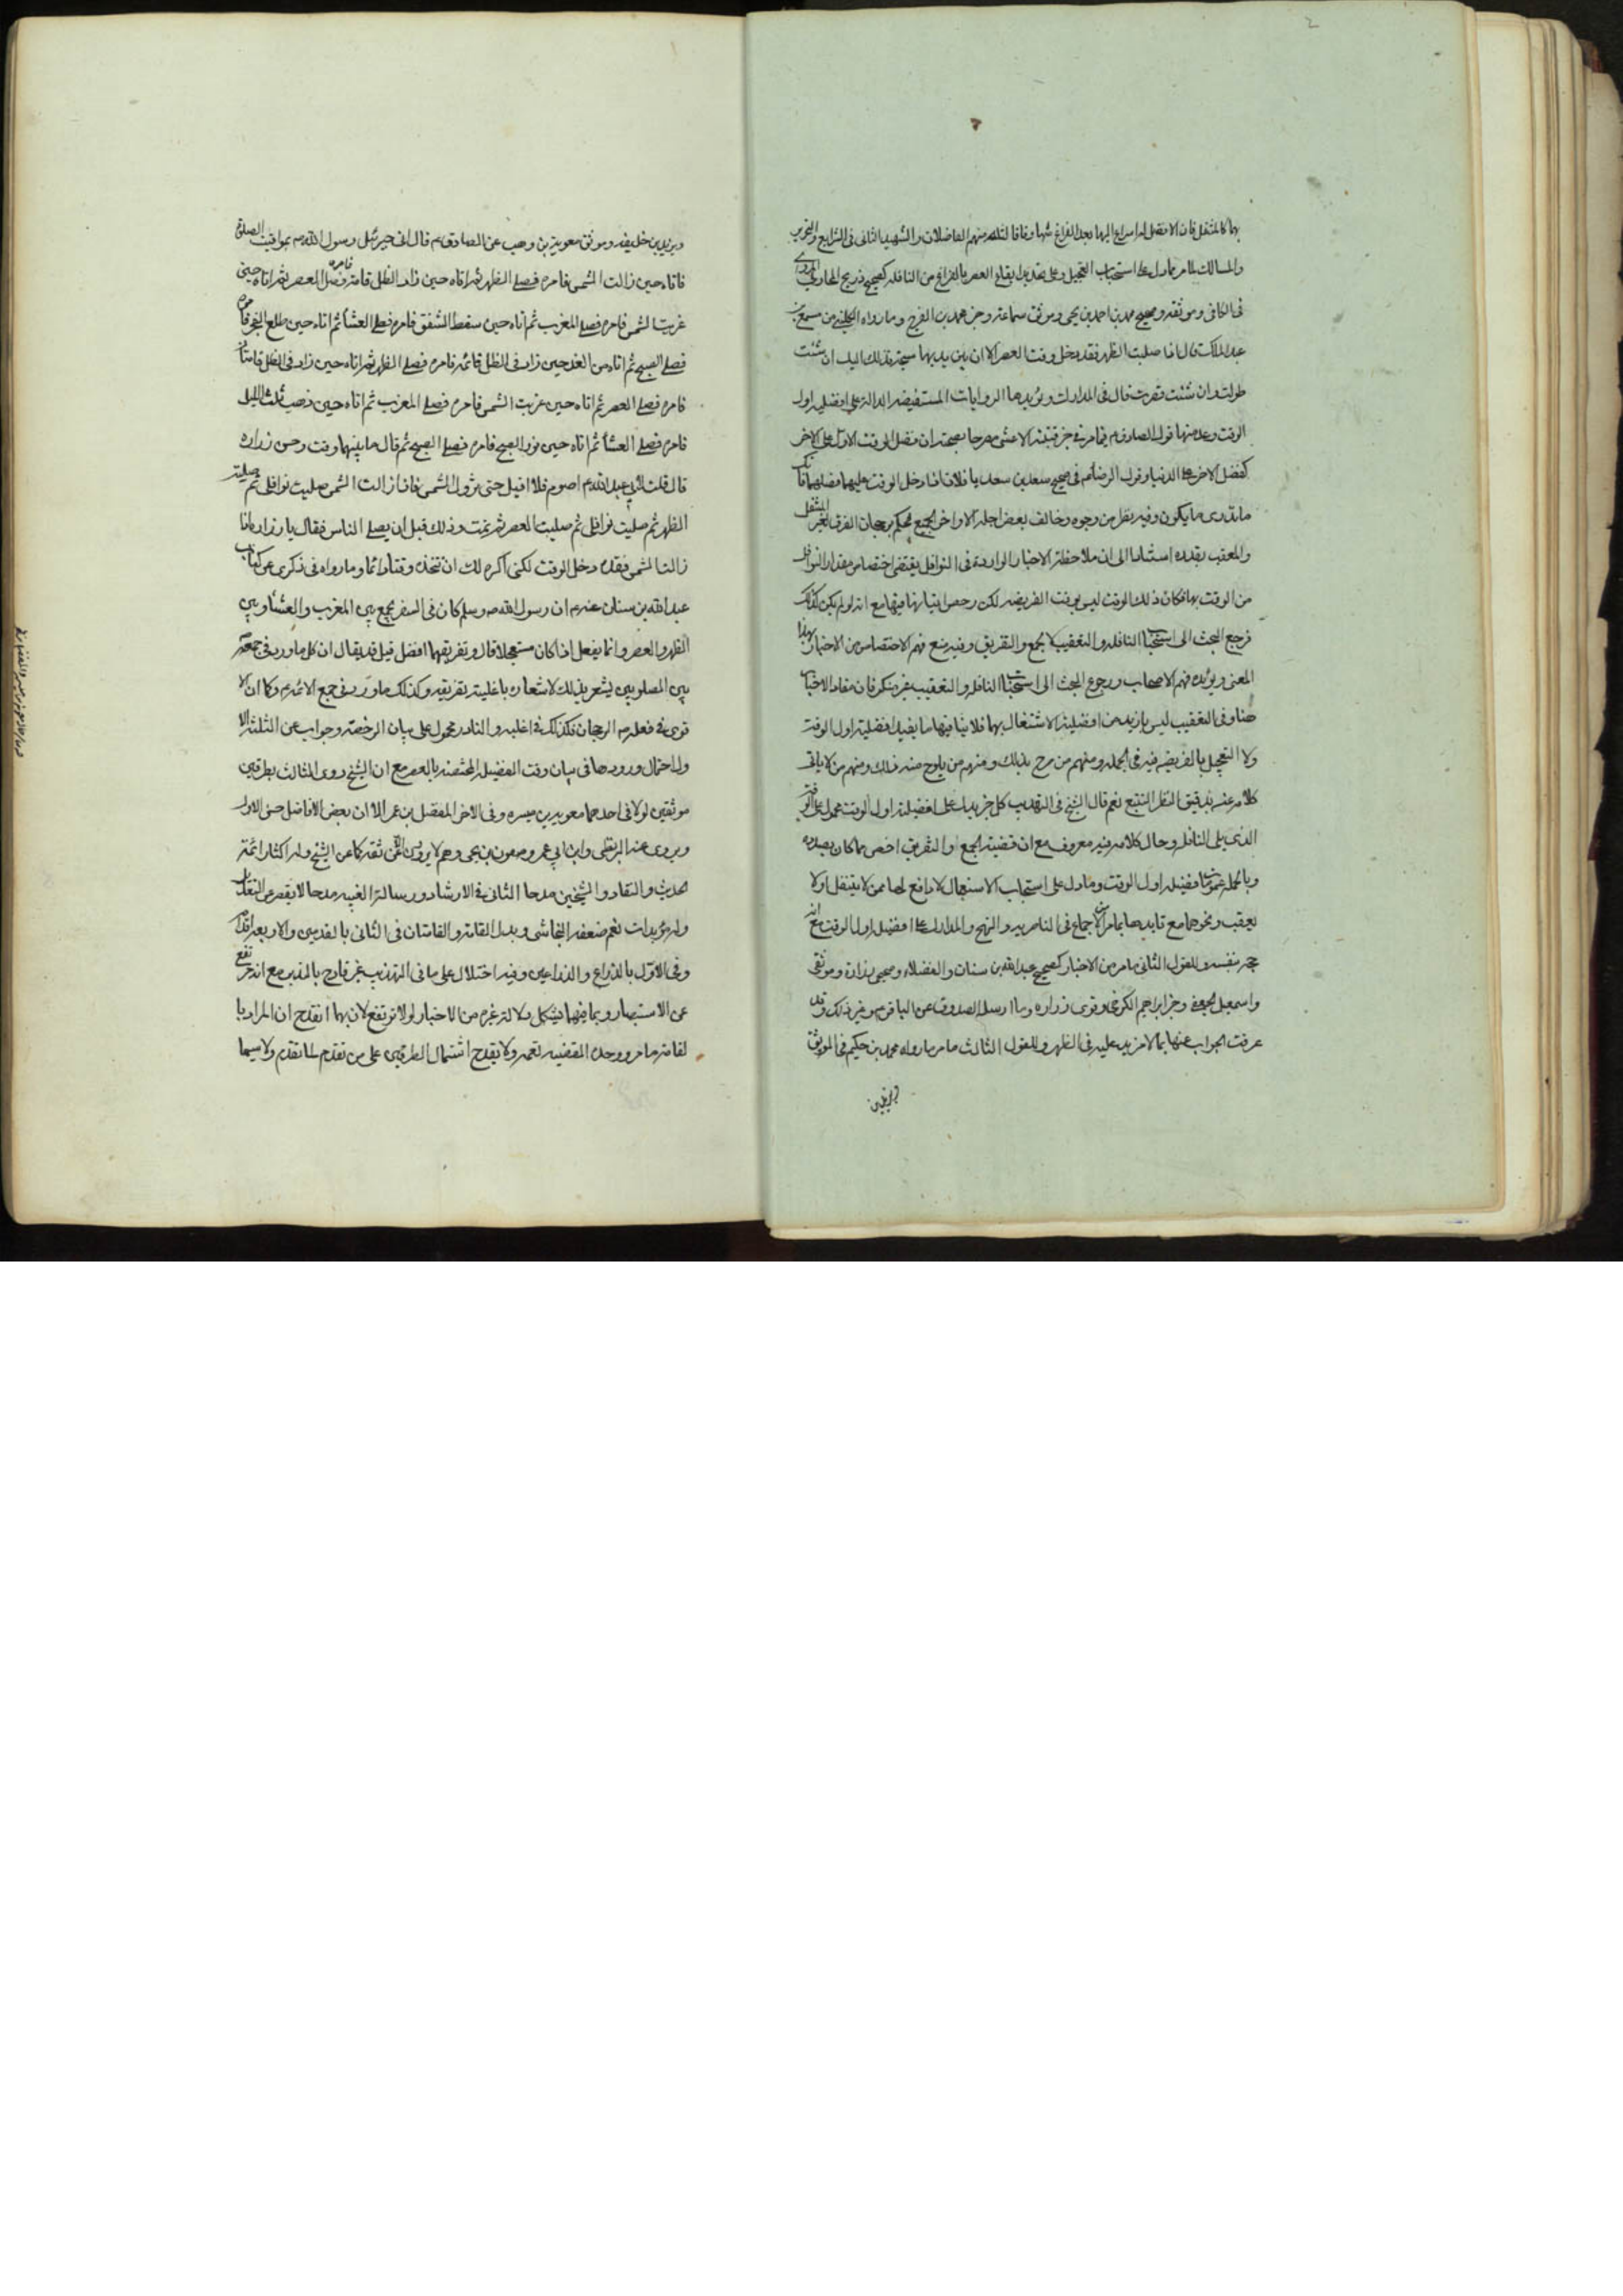 بها كالمتنفل فان الافضل له اسراع اليها بعد الفراغ منها وفاقا لثلة منهم الفاضلان والشهيد الثاني في الشرايع والتحرير
والمسالك لما مر مما دل على استحباب التعجيل وعلى تقديم ايقاع العصر بالفراغ من النافلة كصحيح ذريح المحاربي
في الكافي وموثقه وصحيح محمد بن احمد بن يحيى وموثق سماعة وخبر محمد بن الفرج وما رواه الكليني من مسمع بن
عبد الملك قال اذا صليت الظهر فقد دخل وقت العصر الا ان بين يديها سبحة فذلك اليك ان شئت
طولت وان شئت قصرت قال في المدارك ويؤيدها الروايات المستفيضة الدالة على افضلية اول
الوقت وعد منها قول الصادق م فضل الوقت الاول على الاخر
كفضل الاخرة على الدنيا وقول الرضا م في صحيح سعد بن سعد يا فلان اذا دخل الوقت عليهما فصلهما فانك
ما تدرى ما يكون وفيه نظر من وجوه وخالف بعض اجلة الاواخر الجميع فحكم برجحان الفرق لغير المتنفل
والمعقب بقدره استنادا الى ان ملاحظة الاخبار الواردة في النوافل يقتضى اختصاص مقدار النوافل
من الوقت بها فكان ذلك الوقت ليس بوقت الفريضة لكن رخص اتيانها فيها مع انه لو لم يكن كذلك
فرجع البحث الى استحباب النافلة والتعقيب لا الجمع والتفريق وفيه منع فهم الاختصاص من الاخبار بهذا
المعنى ويؤيده فهم الاصحاب ورجوع البحث الى استحباب النافلة والتعقيب غير منكر فان مفاد الاخبار
هنا وفي التعقيب ليس بازيد من افضلية الاشتغال بهما فلا ينافيها ما يفيد افضلية اول الوقت
ولا التعجيل بالفريضة فيه في الجملة ومنهم من صرح بذلك ومنهم من يلوح منه ذلك ومنهم من لا يابى
كلامه عنه بدقيق النظر التتبع نعم قال الشيخ في التهذيب كل خبر يدل على افضلية اول الوقت محمول على الوقت
الذي يلى النافلة وحال كلامه فيه معروف مع ان قضية الجمع او التفريق اخص مما كان بصدده
وبالجملة عمومات فضيلة اول الوقت وما دل على استحباب الاستعجال لا دافع لها ممن لا يتنفل او لا
يعقب ونحوهما مع تاييدها بما مر من الاجماع في الناصرية والنهج والمدارك على افضلية اول الوقت مع انه
حجة بنفسه وللقول الثاني ما مر من الاخبار كصحيح عبد الله بن سنان والفضلاء وصحيحى زرارة وموثقى
واسمعيل الجعفي وخبر ابراهيم الكرخي وقوى زراره وما ارسله الصدوق عن الباقر م وغير ذلك وقد
عرفت الجواب عنها بما لا مزيد عليه في الظهر وللقول الثالث ما مر ما رواه محمد بن حكيم في الموثق
ويزيد بن خليفة وموثق معوية بن وهب عن الصادق م قال اتى جبرئيل رسول الله ص بمواقيت الصلوة
فاتاه حين زالت الشمس فامره فصلى الظهر ثم اتاه حين زاد الظل قامة فامره فصلى العصر ثم اتاه حين
غربت الشمس فامره فصلى المغرب ثم اتاه حين سقط الشفق فامره فصلى العشاء ثم اتاه حين طلع الفجر فامره
فصلى الصبح ثم اتاه من الغد حين زاد في الظل قامة فامره فصلى الظهر ثم اتاه حين زاد في الظل قامتان
فامره فصلى العصر ثم اتاه حين غربت الشمس فامره فصلى المغرب ثم اتاه حين ذهب ثلث الليل
فامره فصلى العشاء ثم اتاه حين نور الصبح فامره فصلى الصبح ثم قال ما بينهما وقت وحسن زراره
قال قلت لابي عبد الله م اصوم فلا اقيل حتى تزول الشمس فاذا زالت الشمس صليت نوافلى ثم صليت
الظهر ثم صليت نوافلى ثم صليت العصر ثم نمت وذلك قبل ان يصلى الناس فقال يا زراره اذا
زالت الشمس فقد دخل الوقت لكنى اكره لك ان تتخذه وقتا دائما وما رواه في ذكرى عن كتاب
عبد الله بن سنان عنه م ان رسول الله صلى الله عليه وسلم كان في السفر يجمع بين المغرب والعشاء وبين
الظهر والعصر وانما يفعل اذا كان مستعجلا قال وتفريقهما افضل قيل قد يقال ان كل ما ورد في جمعه
بين الصلوتين يشعر بذلك لاشعاره باغلبية تفريقه وكذلك ما ورد في جمع الائمة م وكما ان الا
قوى في فعله م الرجحان فكذلك في اغلبه والنادر محمول على بيان الرخصة وجوابه عن الثلثة الا
ول احتمال ورودها في بيان وقت الفضيلة المختصة بالعصر مع ان الشيخ روى الثالث بطرقين
موثقين لولا في احدهما معوية بن ميسرة وفي الاخر المفضل بن عمر الا ان بعض الافاضل حسن الاول
ويروى عنه البزنطى وابن ابي عمير وصفوان بن يحيى وهم لا يروون الا عن ثقة كما عن الشيخ وله اكثار ائمة
الحديث والنقاد والشيخين مدحا الثاني في الارشاد ورسالة الغيبة مدحا لا يقصر عن التعديل
وله مؤيدات نعم ضعفه النجاشى وبدل القامة والقامتان في الثاني بالقدمين والاربعة اقدام
وفي الاول بالذراع والذراعين وفيه اختلال على ما في التهذيب غير قادح بالمتن مع انه مرتفع
عن الاستبصار وبما فيهما يشكل دلالة غيره من الاخبار لولا ترتفع لان بهما انقدح ان المراد با
لقامة ما مر ووحدة القضية تعمه ولا يقدح اشتمال الطرقين على من تقدم لما تقدم ولا سيما